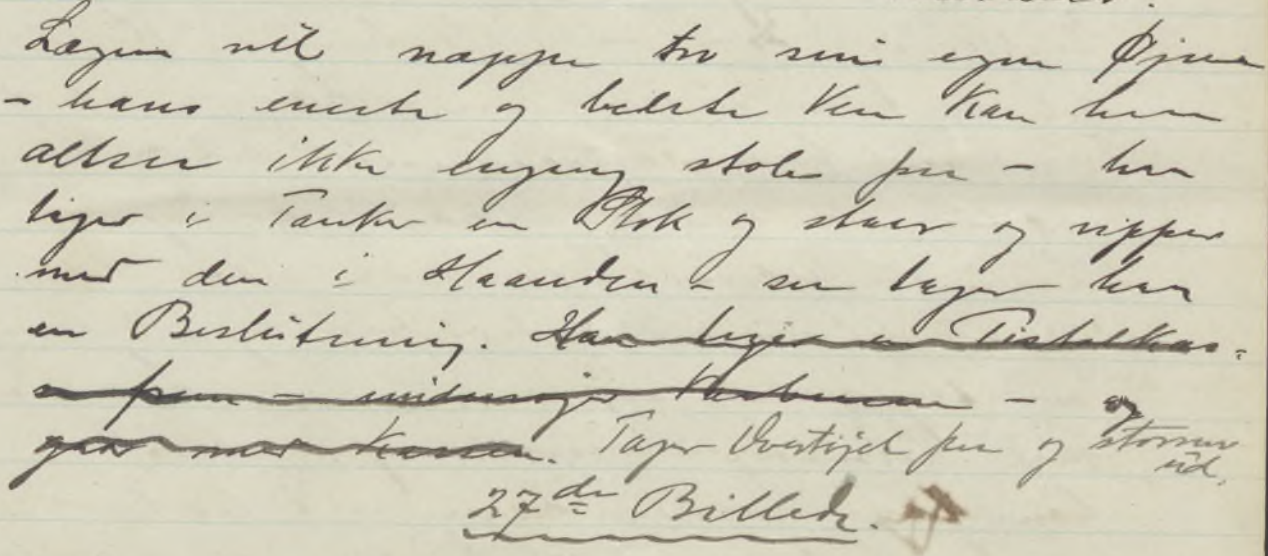 Lægen vil næppe tro sine egne Øjne
- hans eneste og bedste Ven kan han
altsaa ikke engang stole paa - han
tager i Tanker en Stok og staar og vipper
med den i Haanden - saa tager han
en Beslutning. Han tager en Pistolkas-
se frem - undersøger Vaabnene - og
gaar med Kassen. Tager Overtøjet paa og stormer
ud.
27de Billede.